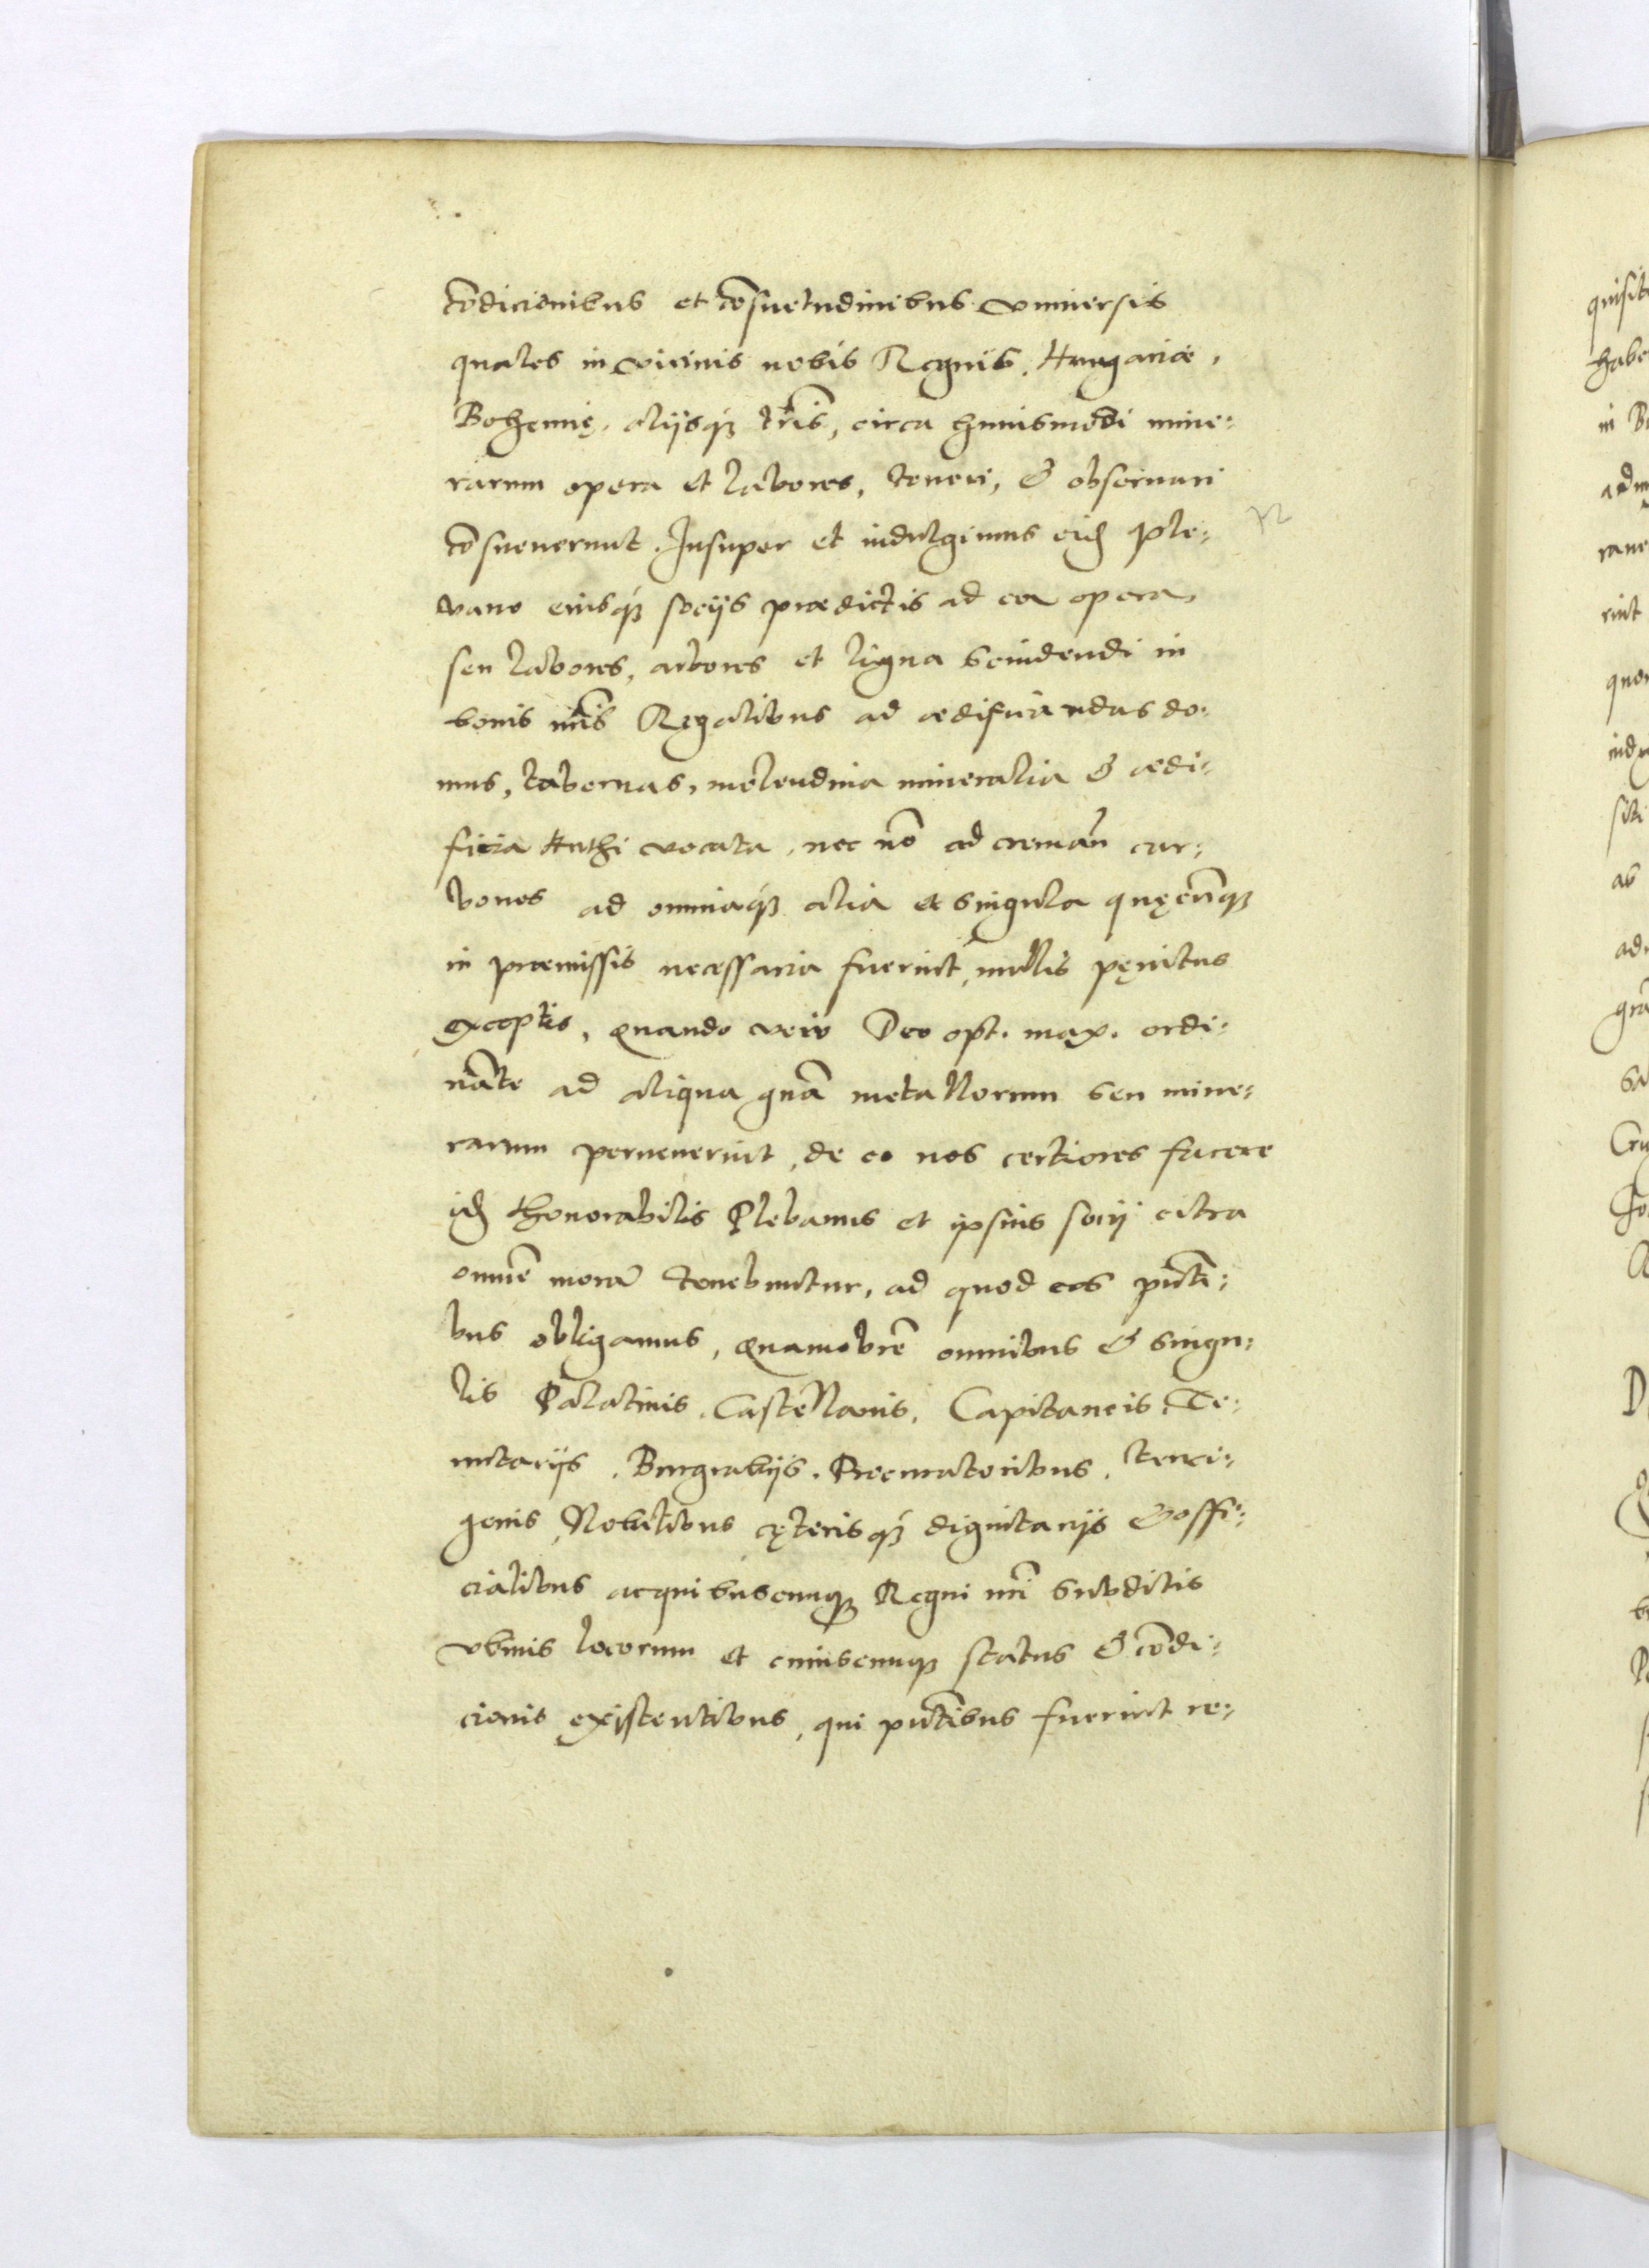 cõdicionibus et cõsuetudinibus vniuersis
quales in vicinis nobis Regnis, Hungariæ,
Bohemię, alijsq́ꝫ tr̃is, circa huiusmodi mine:
rarum opera et labores, teneri, & obseruari
cõsueuerunt. Insuper et indulgemus eidẽ Ple:
bano eiusq́ꝫ socijs prædictis ad ea opera
seu labores, arbores et ligna scindendi in
bonis nr̃is Regalibus ad ædificandas do:
mus, tabernas, molendina mineralia & ædi:
ficia Huthi vocata, nec nõ ad cremãn car:
bones ad omniaq́ꝫ alia et singula quęcũqꝫ
in præmissis necessaria fuerint, nullis pęnitus
exceptis, Quando vero Deo opt. max. ordi:
nãte ad aliqua gña metallorum seu mine:
rarum peruenerint, de eo nos certiores facere
idẽ Honorabilis Plebanus et ipsius socij citra
omnẽ morã tenebuntur, ad quod eos pñti:
bus obligamus, Quamobrẽ omnibus & singu:
lis Palatinis, Castellanis, Capitaneis, Te:
nutarijs, Burgrabijs, Procuratoribus, terri:
genis, Nobilibus cęterisq́ꝫ dignitarijs & offi:
cialibus ac quibuscunqꝫ Regni nr̃i subditis
vbiuis locorum et cuiuscunqꝫ status & cõdi:
cionis existentibus, qui pñtibus fuerint re:
quisit
habe